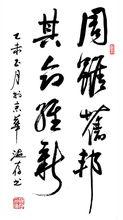 周雖舊邦
其命維新
乙未五月於京華